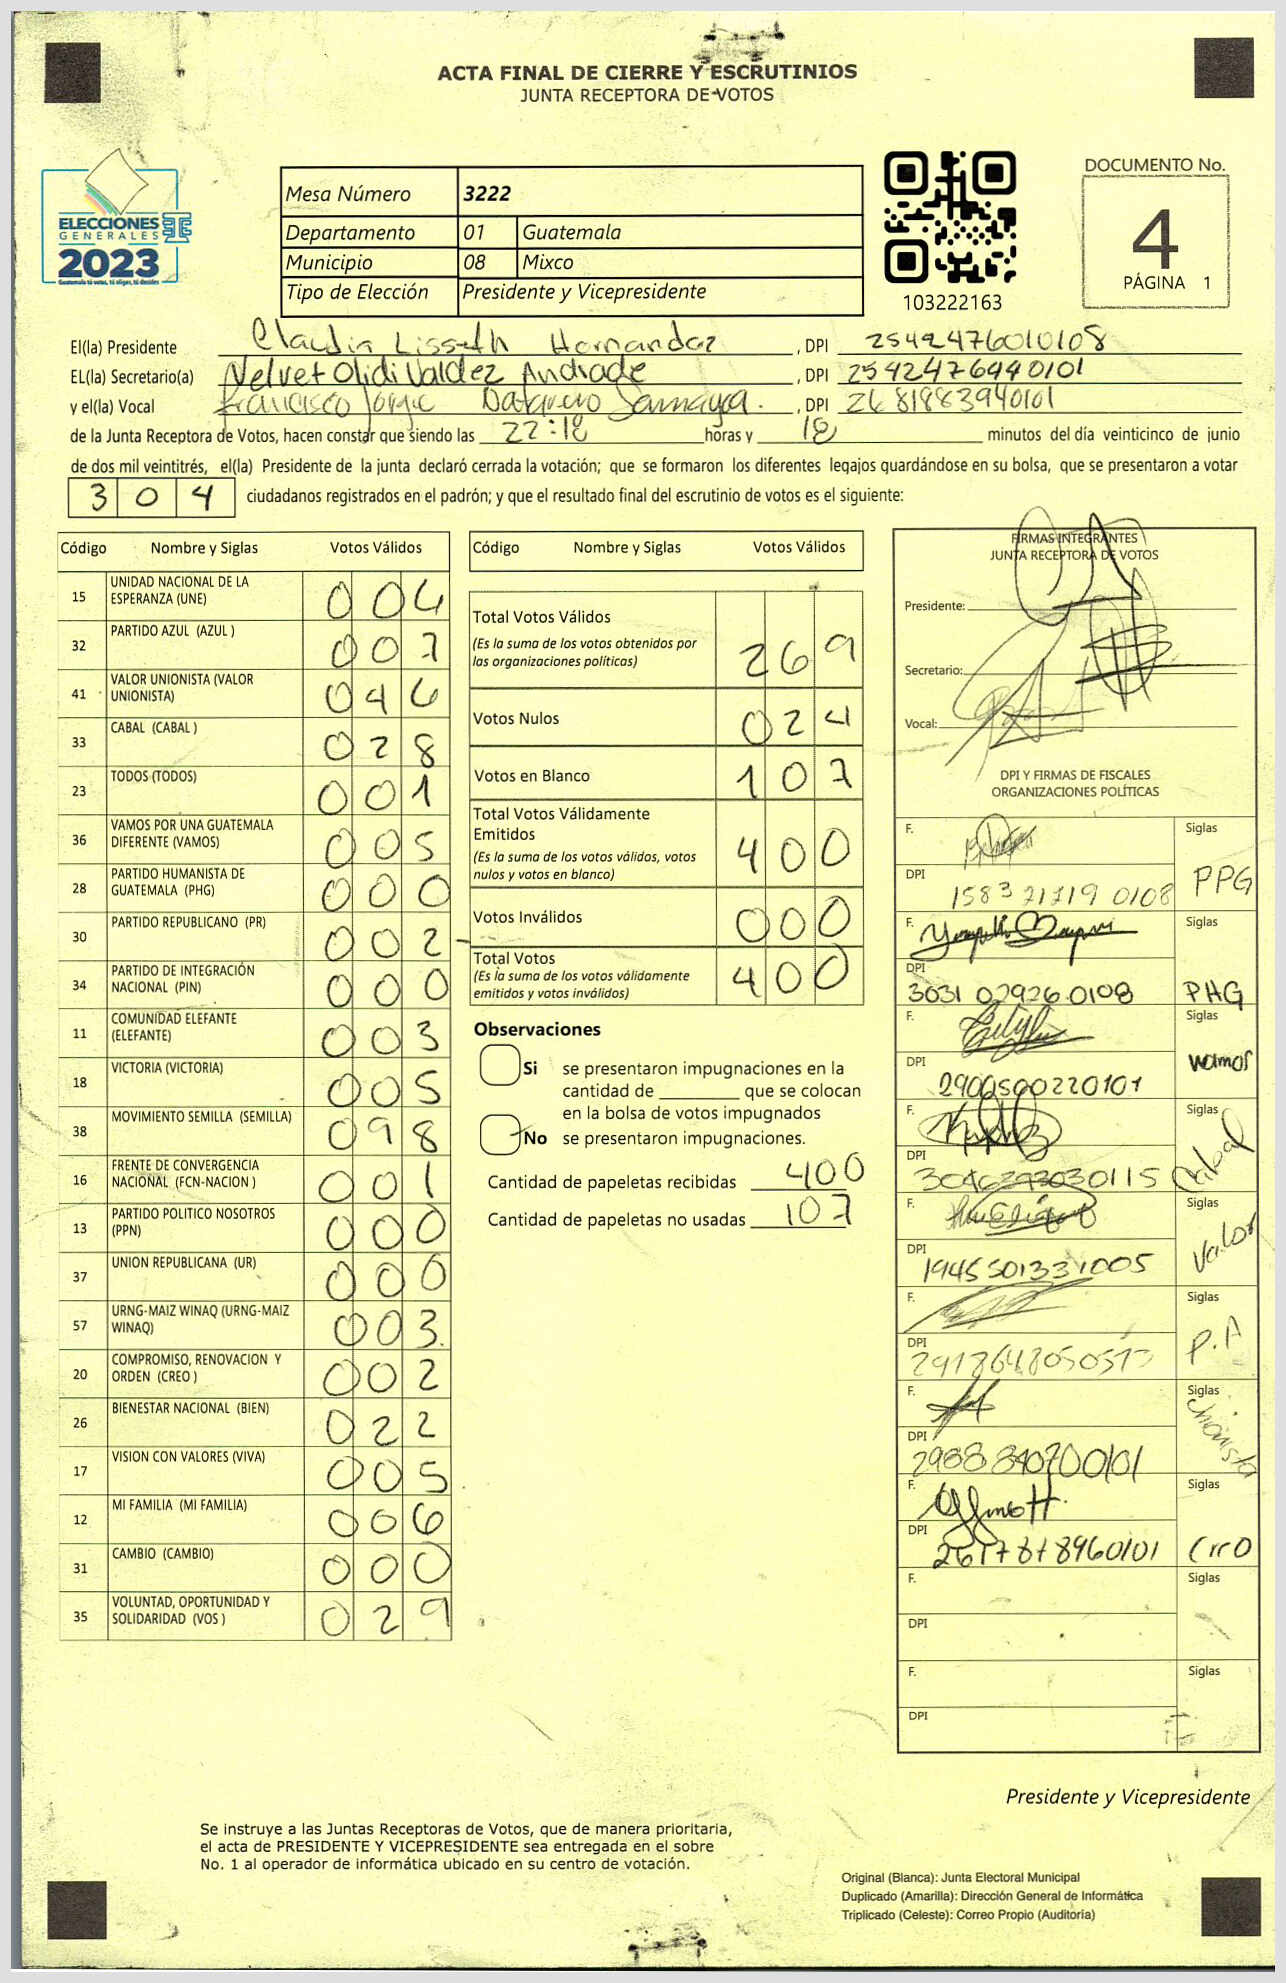 ACTA FINAL DE CIERRE Y ESCRUTINIOS
JUNTA RECEPTORA DE VOTOS
ELECCIONES
GENERALES
2023
Mesa Número 3222
Departamento 01 Guatemala
Municipio 08 Mixco
Tipo de Elección Presidente y Vicepresidente
103222163
DOCUMENTO No.
4
PÁGINA 1
El(la) Presidente Claudia Lisseth Hernandez, DPI 2542476010108
EL(la) Secretario(a) Nelvet Olidi Valdez Andrade, DPI 2542476940101
y el(la) Vocal Francisco Jorge Samayoa., DPI 2681883940101
de la Junta Receptora de Votos, hacen constar que siendo las 22:18 horas y 18 minutos del día veinticinco de junio
de dos mil veintitrés, el(la) Presidente de la junta declaró cerrada la votación; que se formaron los diferentes legajos guardándose en su bolsa, que se presentaron a votar
304 ciudadanos registrados en el padrón; y que el resultado final del escrutinio de votos es el siguiente:
Código Nombre y Siglas Votos Válidos
15 UNIDAD NACIONAL DE LA ESPERANZA (UNE) 004
32 PARTIDO AZUL (AZUL ) 007
41 VALOR UNIONISTA (VALOR UNIONISTA) 046
33 CABAL (CABAL ) 028
23 TODOS (TODOS) 001
36 VAMOS POR UNA GUATEMALA DIFERENTE (VAMOS) 005
28 PARTIDO HUMANISTA DE GUATEMALA (PHG) 000
30 PARTIDO REPUBLICANO (PR) 002
34 PARTIDO DE INTEGRACIÓN NACIONAL (PIN) 000
11 COMUNIDAD ELEFANTE (ELEFANTE) 003
18 VICTORIA (VICTORIA) 005
38 MOVIMIENTO SEMILLA (SEMILLA) 098
16 FRENTE DE CONVERGENCIA NACIONAL (FCN-NACION ) 001
13 PARTIDO POLITICO NOSOTROS (PPN) 000
37 UNION REPUBLICANA (UR) 000
57 URNG-MAIZ WINAQ (URNG-MAIZ WINAQ) 003
20 COMPROMISO, RENOVACION Y ORDEN (CREO ) 002
26 BIENESTAR NACIONAL (BIEN) 022
17 VISION CON VALORES (VIVA) 005
12 MI FAMILIA (MI FAMILIA) 006
31 CAMBIO (CAMBIO) 000
35 VOLUNTAD, OPORTUNIDAD Y SOLIDARIDAD (VOS ) 029
Código Nombre y Siglas Votos Válidos
Total Votos Válidos 269
(Es la suma de los votos obtenidos por
las organizaciones políticas)
Votos Nulos 024
Votos en Blanco 107
Total Votos Válidamente
Emitidos 400
(Es la suma de los votos válidos, votos
nulos y votos en blanco)
Votos Inválidos 000
Total Votos 400
(Es la suma de los votos válidamente
emitidos y votos inválidos)
Observaciones
Si se presentaron impugnaciones en la
cantidad de ________ que se colocan
en la bolsa de votos impugnados
No se presentaron impugnaciones.
Cantidad de papeletas recibidas 400
Cantidad de papeletas no usadas 107
FIRMAS INTEGRANTES
JUNTA RECEPTORA DE VOTOS
Presidente:
Secretario:
Vocal:
DPI Y FIRMAS DE FISCALES
ORGANIZACIONES POLÍTICAS
F. Siglas
DPI 1583 71719 0108 PPG
F. Siglas
DPI 3031 02926 0108 PHG
F. Siglas
DPI 2900500220101 vamos
F. Siglas
DPI 3046393030115 Cabal
F. Siglas
DPI 1945501331005 Valor
F. Siglas
DPI P.A
F. Siglas
DPI 2988840700101
F. Siglas
DPI 2617878960101
F. Siglas
DPI
F. Siglas
DPI
Presidente y Vicepresidente
Se instruye a las Juntas Receptoras de Votos, que de manera prioritaria,
el acta de PRESIDENTE Y VICEPRESIDENTE sea entregada en el sobre
No. 1 al operador de informática ubicado en su centro de votación.
Original (Blanca): Junta Electoral Municipal
Duplicado (Amarilla): Dirección General de Informática
Triplicado (Celeste): Correo Propio (Auditoría)